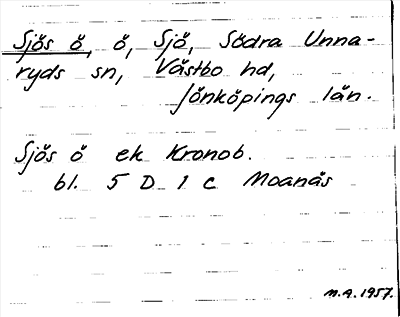 Sjös ö, ö, Sjö, Södra Unna-
ryds sn, Västbo hd,
Jönköpings län.
Sjös ö ek Kronob.
bl. 5 D 1 c Moanäs
M.A. 1957.